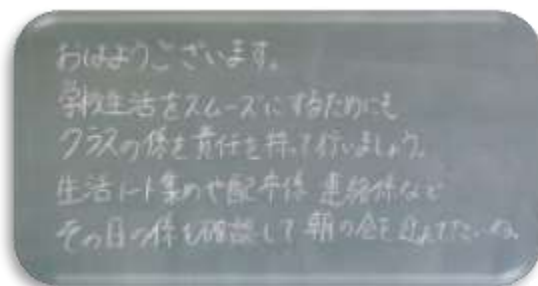 おはようございます。
学校生活をスムーズにするためにも
クラスの係を責任を持って行いましょう。
生活ノート集めや配布係 連絡係など
その日の係も確認して朝の会を迎えたいね。